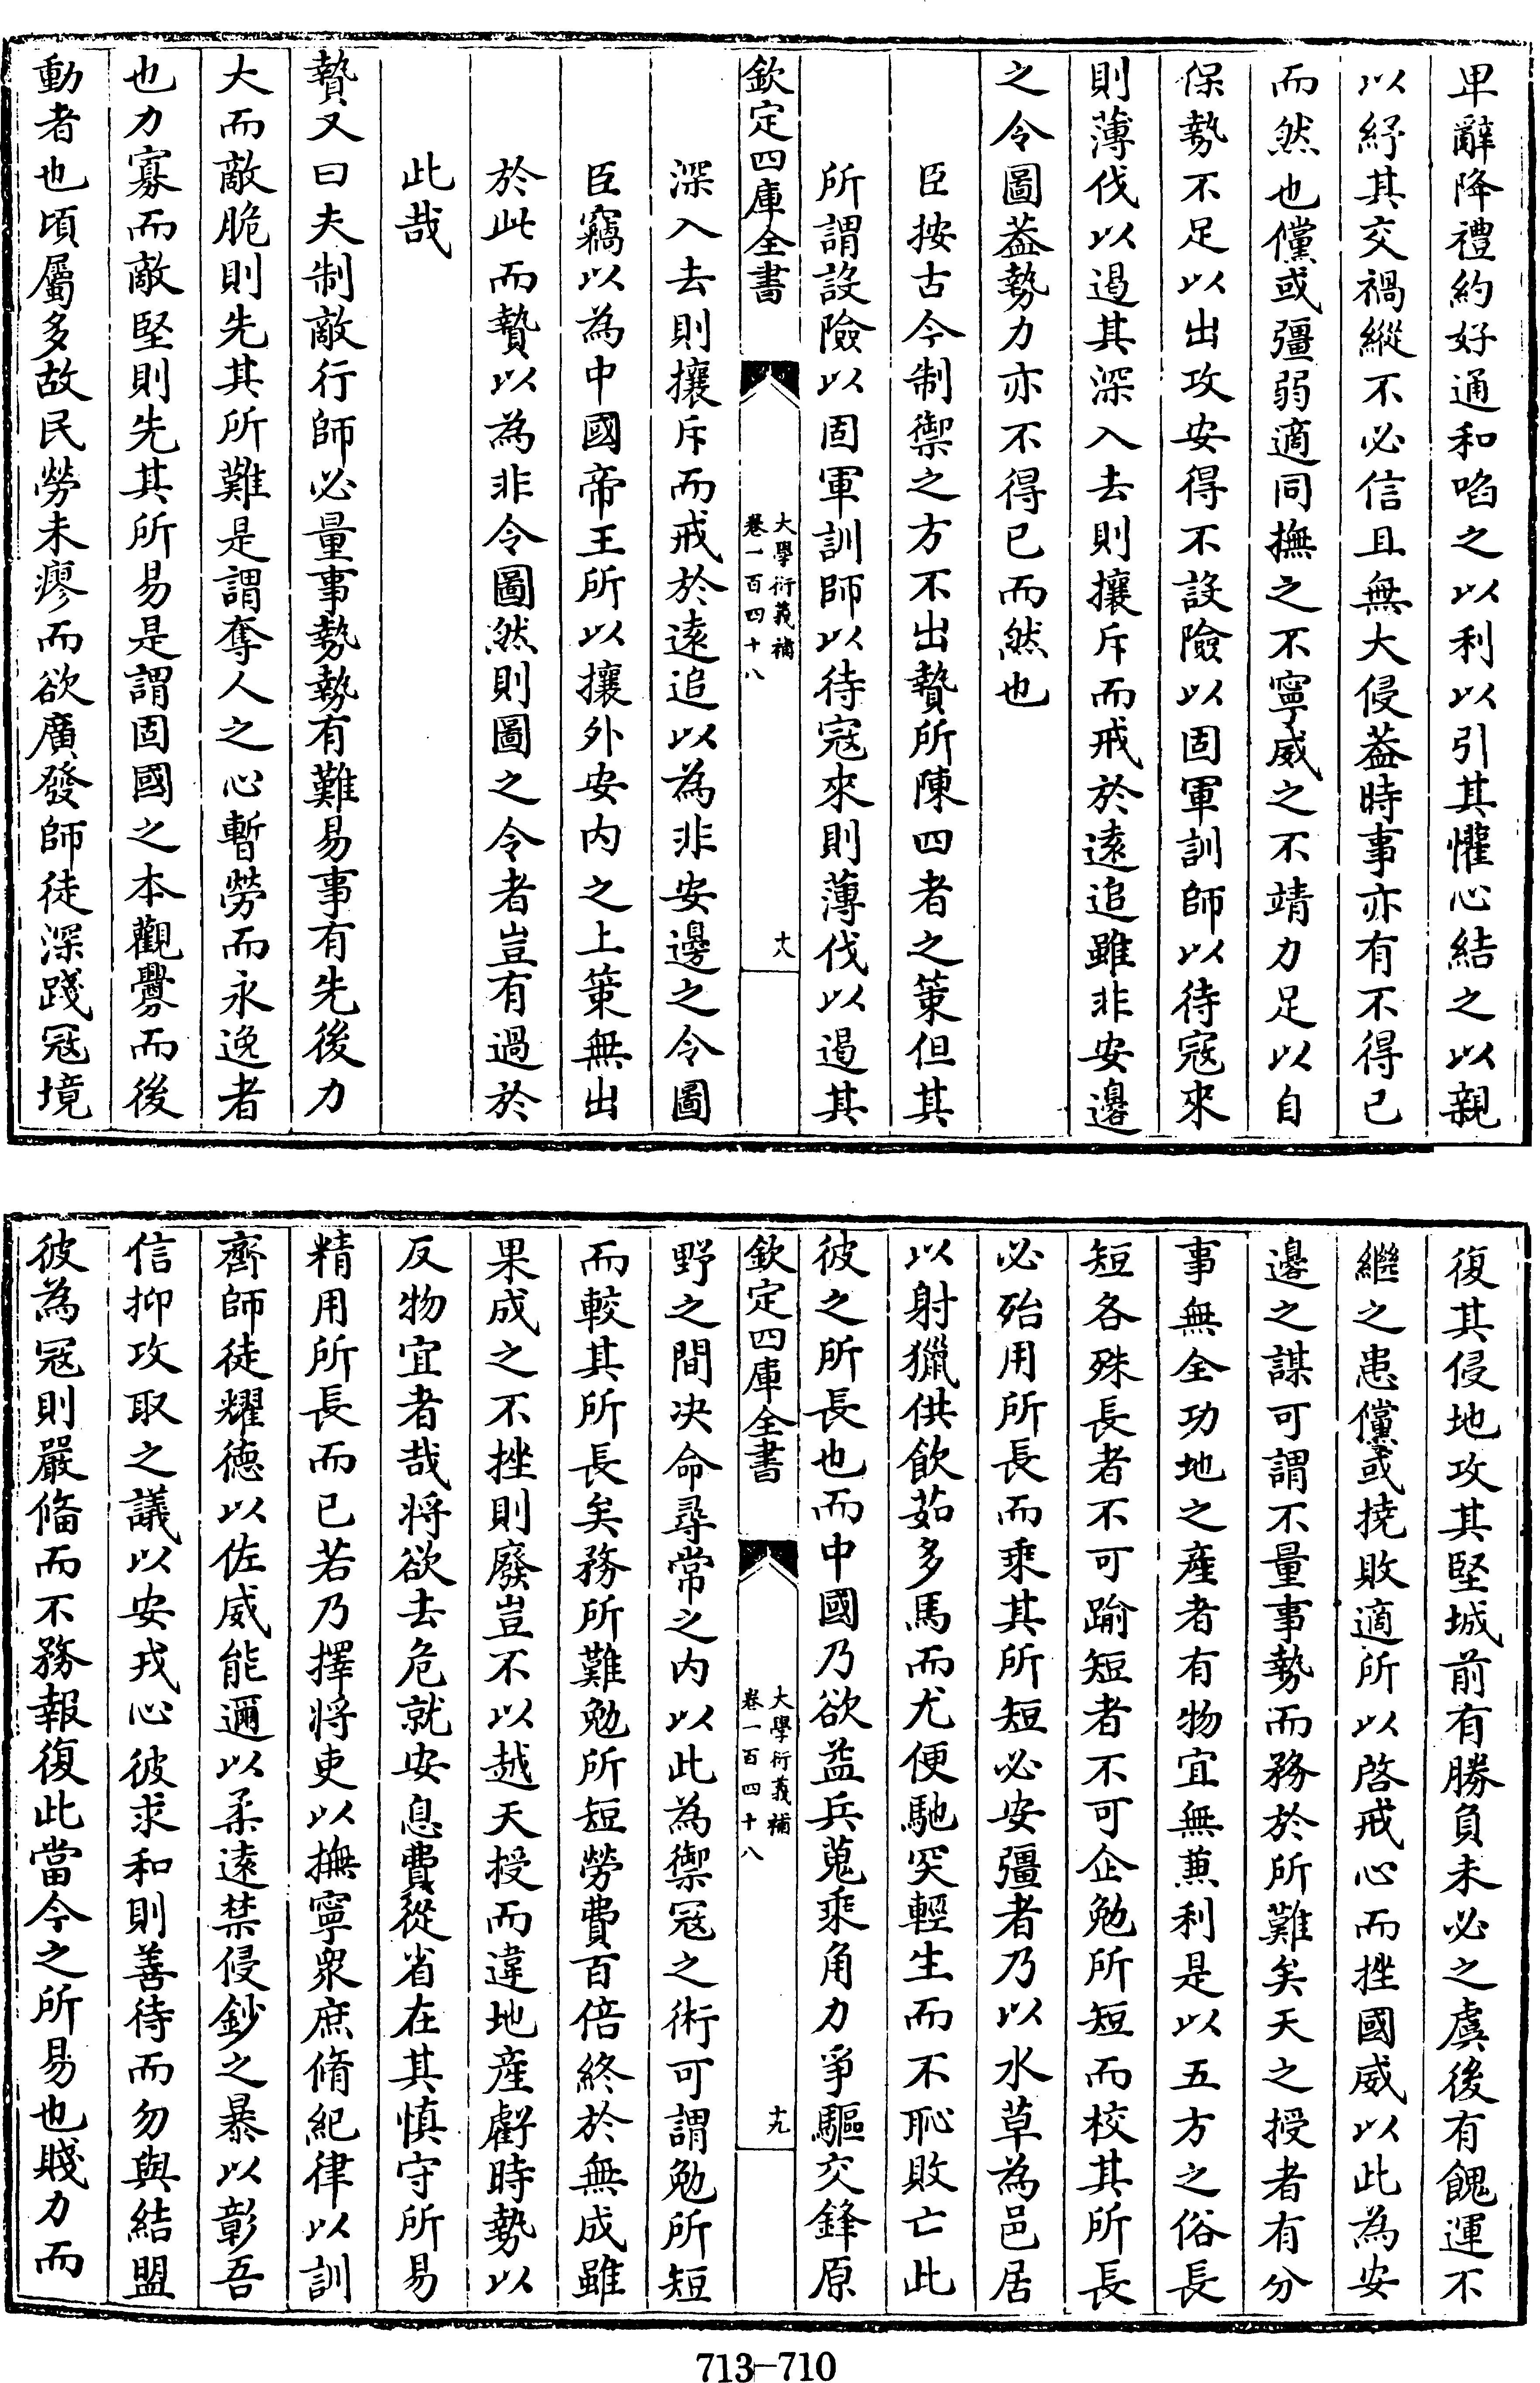 卑辭降禮約好通和啗之以利以引其懽心結之以親
以紓其交禍縱不必信且無大侵葢時事亦有不得已
而然也儻或彊弱適同撫之不寧威之不靖力足以自
保勢不足以出攻安得不設險以固軍訓師以待寇來
則薄伐以遏其深入去則攘斥而戒於遠追雖非安邊
之令圖葢勢力亦不得已而然也
臣按古今制禦之方不出贄所陳四者之策但其
所謂設險以固軍訓師以待寇來則薄伐以遏其
欽定四庫全書
大學衍義補
卷一百四十八
十八
深入去則攘斥而戒於遠追以為非安邊之令圖
臣竊以為中國帝王所以攘外安内之上策無出
於此而贄以為非令圖然則圖之令者豈有過於
此哉
贄又曰夫制敵行師必量事勢勢有難易事有先後力
大而敵脆則先其所難是謂奪人之心暫勞而永逸者
也力寡而敵堅則先其所易是謂固國之本觀釁而後
動者也頃屬多故民勞未瘳而欲廣發師徒深踐寇境
復其侵地攻其堅城前有勝負未必之虞後有餽運不
繼之患儻或撓敗適所以啓戎心而挫國威以此為安
邊之謀可謂不量事勢而務於所難矣天之授者有分
事無全功地之産者有物宜無兼利是以五方之俗長
短各殊長者不可踰短者不可企勉所短而校其所長
必殆用所長而乘其所短必安彊者乃以水草為邑居
以射獵供飲茹多馬而尤便馳突輕生而不恥敗亡此
彼之所長也而中國乃欲益兵蒐乘角力爭驅交鋒原
欽定四庫全書
大學衍義補
卷一百四十八
十九
野之間决命尋常之内以此為禦寇之術可謂勉所短
而較其所長矣務所難勉所短勞費百倍終於無成雖
果成之不挫則廢豈不以越天授而違地産虧時勢以
反物宜者哉将欲去危就安息費從省在其慎守所易
精用所長而已若乃擇将吏以撫寧衆庶脩紀律以訓
齊師徒耀德以佐威能邇以柔遠禁侵鈔之暴以彰吾
信抑攻取之議以安戎心彼求和則善待而勿與結盟
彼為寇則嚴偹而不務報復此當今之所易也賤力而
713-710